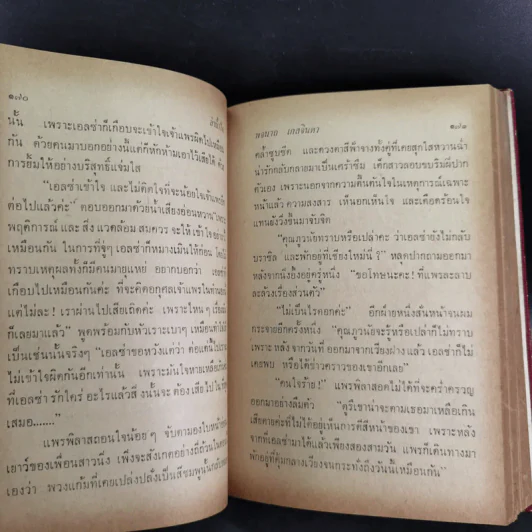 ๑๗๐
นั้น เพราะเอลซ่าก็เกือบจะเข้าใจเจ้าแพรผิดไปเหมือน
กัน ด้วยคนมาบอกอย่างนี้แต่ก็หักห้ามเอาไว้เสียได้
การยิ้มให้อย่างบริสุทธิ์แจ่มใส
“เอลซ่าเข้าใจ และไม่คิดใจที่จะน้อยใจเจ้าแพรอีก
ต่อไปแล้วค่ะ” ตอบออกมาด้วยน้ำเสียงอ่อนหวาน
พฤติการณ์ และ สิ่ง แวดล้อม สมควร จะ ให้
เหมือนกัน ในการที่จู่ๆ เอลซ่าก็หมางเมินให้ก่อน
ทราบเหตุผลทั้งที่มีคนมายุแหย่ อยากบอกว่า
เกือบไปเหมือนกันค่ะ ที่จะคิดอกุศลเจ้าแพรในทำนอง
แต่ไม่ละ! เราผ่านไปเสียเถิดค่ะ เพราะไหนๆ
ก็เลยมาแล้ว” พูดพร้อมกับหัวเราะเบาๆ เหมือน
เป็นเช่นนั้นจริงๆ “เอลซ่าขอหวังแค่ว่า ต่อแต่นี้ไปเรา
ไม่เข้าใจผิดกันอีกเท่านั้น เพราะมันใจหายเหลือ
ที่เอลซ่า รักใคร่ อะไรแล้วสิ่ งนั้นจะ ต้อง เสียไป
เสมอ.......”
แพรพิลาสถอนใจน้อยๆ จับตามองใบหน้า
เยาว์ของเพื่อนสาวนิ่ง เพิ่งจะสังเกตอย่างถี่ถ้วนในตอน
เองว่า พวงแก้มที่เคยเปล่งปลั่งเป็นสีชมพูนั้น
พงบาบ เกสจินดา
๑๗๑
คล้ำซูบซีด และดวงตาสีฟ้าจางทั้งคู่ที่เคยสุกใสหวานฉ่ำ
น่ารักกลับกลายมาเป็นเศร้าซึม เด็กสาวลอบขบริมฝีปาก
ตัวเอง เพราะนอกจากความตื้นตันใจในเหตุการณ์เฉพาะ
หน้าแล้ว ความสงสาร เห็นอกเห็นใจ และเดือดร้อนใจ
แทนยังวิ่งขึ้นมาจับจิต
“คุณภูวนัยทราบหรือเปล่าคะ ว่าเอลซ่ายังไม่กลับ
บราซิล และพักอยู่ที่เชียงใหม่นี่ ?” หลุดปากถามออกมา
หลังจากนิ่งอึ้งอยู่ครู่หนึ่ง “ขอโทษนะคะ! ที่แพรละลาบ
ละล้วงเรื่องส่วนตัว”
“ไม่เป็นไรดอกค่ะ” อีกฝ่ายหนึ่งสั่นหน้าจนผม
กระจายอีกครั้งหนึ่ง “คุณภูวนัยจะรู้หรือเปล่าก็ไม่ทราบ
เพราะ หลัง จากวันที่ ออกมาจากเวียงฝางแล้ว เอลซ่าก็ไม่
เคยพบ หรือได้ข่าวคราวของเขาอีกเลย”
“คนใจร้าย!” แพรพิลาสอดไม่ได้ที่จะคร่ำครวญ
ออกมาอย่างลืมตัว “ดูรึเขาน่าจะตามเธอมาเหลือเกิน
เสียดายค่ะที่ไม่ได้อยู่เห็นการตีสีหน้าของเขา เพราะหลัง
จากที่เอลซ่ามาได้แล้วเพียงสองสามวัน แพรก็เดินทางมา
พักอยู่ที่คุ้มกลางเวียงจนกระทั่งถึงวันนี้เหมือนกัน”